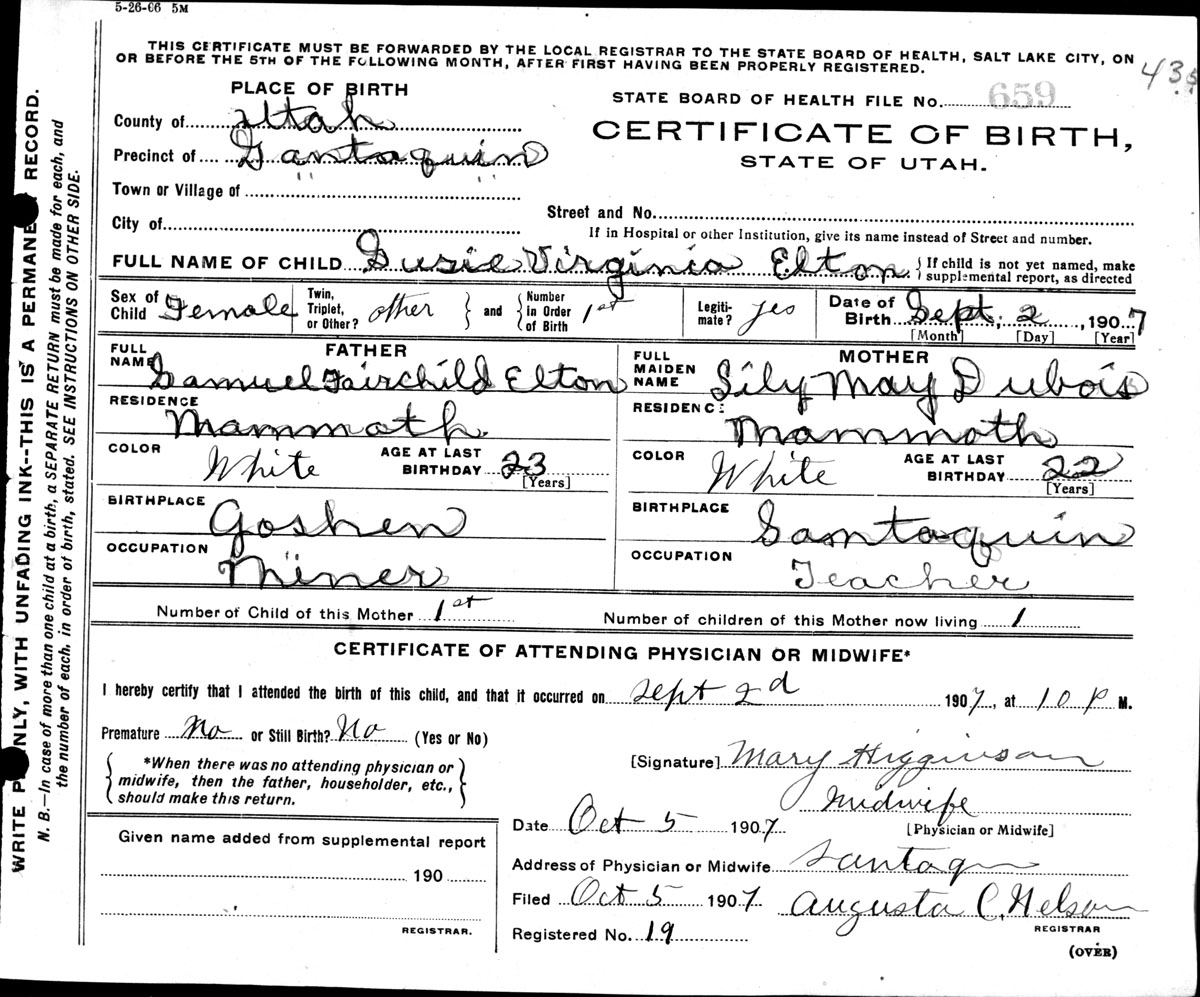 5-26-06 5M
THIS CERTIFICATE MUST BE FORWARDED BY THE LOCAL REGISTRAR TO THE STATE BOARD OF HEALTH, SALT LAKE CITY, ON
OR BEFORE THE 5TH OF THE FOLLOWING MONTH, AFTER FIRST HAVING BEEN PROPERLY REGISTERED.
PLACE OF BIRTH
County of Utah
Precinct of Santaquin
Town or Village of
City of
STATE BOARD OF HEALTH FILE No. 659
CERTIFICATE OF BIRTH,
STATE OF UTAH.
Street and No.
If in Hospital or other Institution, give its name instead of Street and number.
FULL NAME OF CHILD Susie Virginia Elton If child is not yet named, make
supplemental report, as directed
Sex of Child Female Twin, Triplet, or Other? other and Number in Order of Birth 1st Legiti-mate? yes Date of Birth Sept. 2, 1907
[Month] [Day] [Year]
FATHER
FULL NAME Samuel Fairchild Elton
RESIDENCE Mammoth
COLOR White AGE AT LAST BIRTHDAY 23
[Years]
BIRTHPLACE Goshen
OCCUPATION Miner
MOTHER
FULL MAIDEN NAME Lily May Dubois
RESIDENCE Mammoth
COLOR White AGE AT LAST BIRTHDAY 22
[Years]
BIRTHPLACE Santaquin
OCCUPATION Teacher
Number of Child of this Mother 1st Number of children of this Mother now living 1
CERTIFICATE OF ATTENDING PHYSICIAN OR MIDWIFE*
I hereby certify that I attended the birth of this child, and that it occurred on Sept 2d 1907, at 10 P M.
Premature No or Still Birth? No (Yes or No)
*When there was no attending physician or
midwife, then the father, householder, etc.,
should make this return.
[Signature] Mary Higginson
Midwife
[Physician or Midwife]
Date Oct 5 1907
Address of Physician or Midwife Santaqn
Filed Oct 5 1907 Augusta C. Nelson
REGISTRAR
Registered No. 19
(OVER)
Given name added from supplemental report
190
REGISTRAR.
WRITE PLAINLY, WITH UNFADING INK--THIS IS A PERMANENT RECORD.
N. B.—In case of more than one child at a birth, a SEPARATE RETURN must be made for each, and
the number of each, in order of birth, stated. SEE INSTRUCTIONS ON OTHER SIDE.